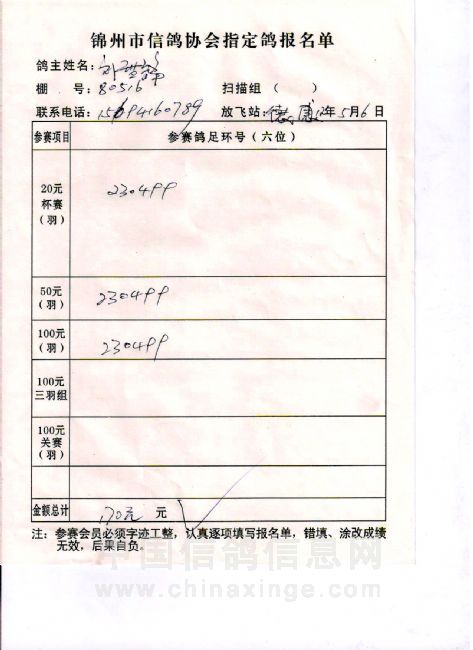 锦州市信鸽协会指定鸽报名单
鸽主姓名：
棚 号：80516 扫描组（ ）
联系电话： 放飞站：德惠12年5月6日
参赛项目 参赛鸽足环号（六位）
20元
杯赛
（羽）
230499
50元
（羽）
230499
100元
（羽）
230499
100元
三羽组
100元
关赛
（羽）
金额总计 170元 元
注：参赛会员必须字迹工整，认真逐项填写报名单，错填、涂改成绩
无效，后果自负。
中国信鸽信息网
www.chinaxinge.com